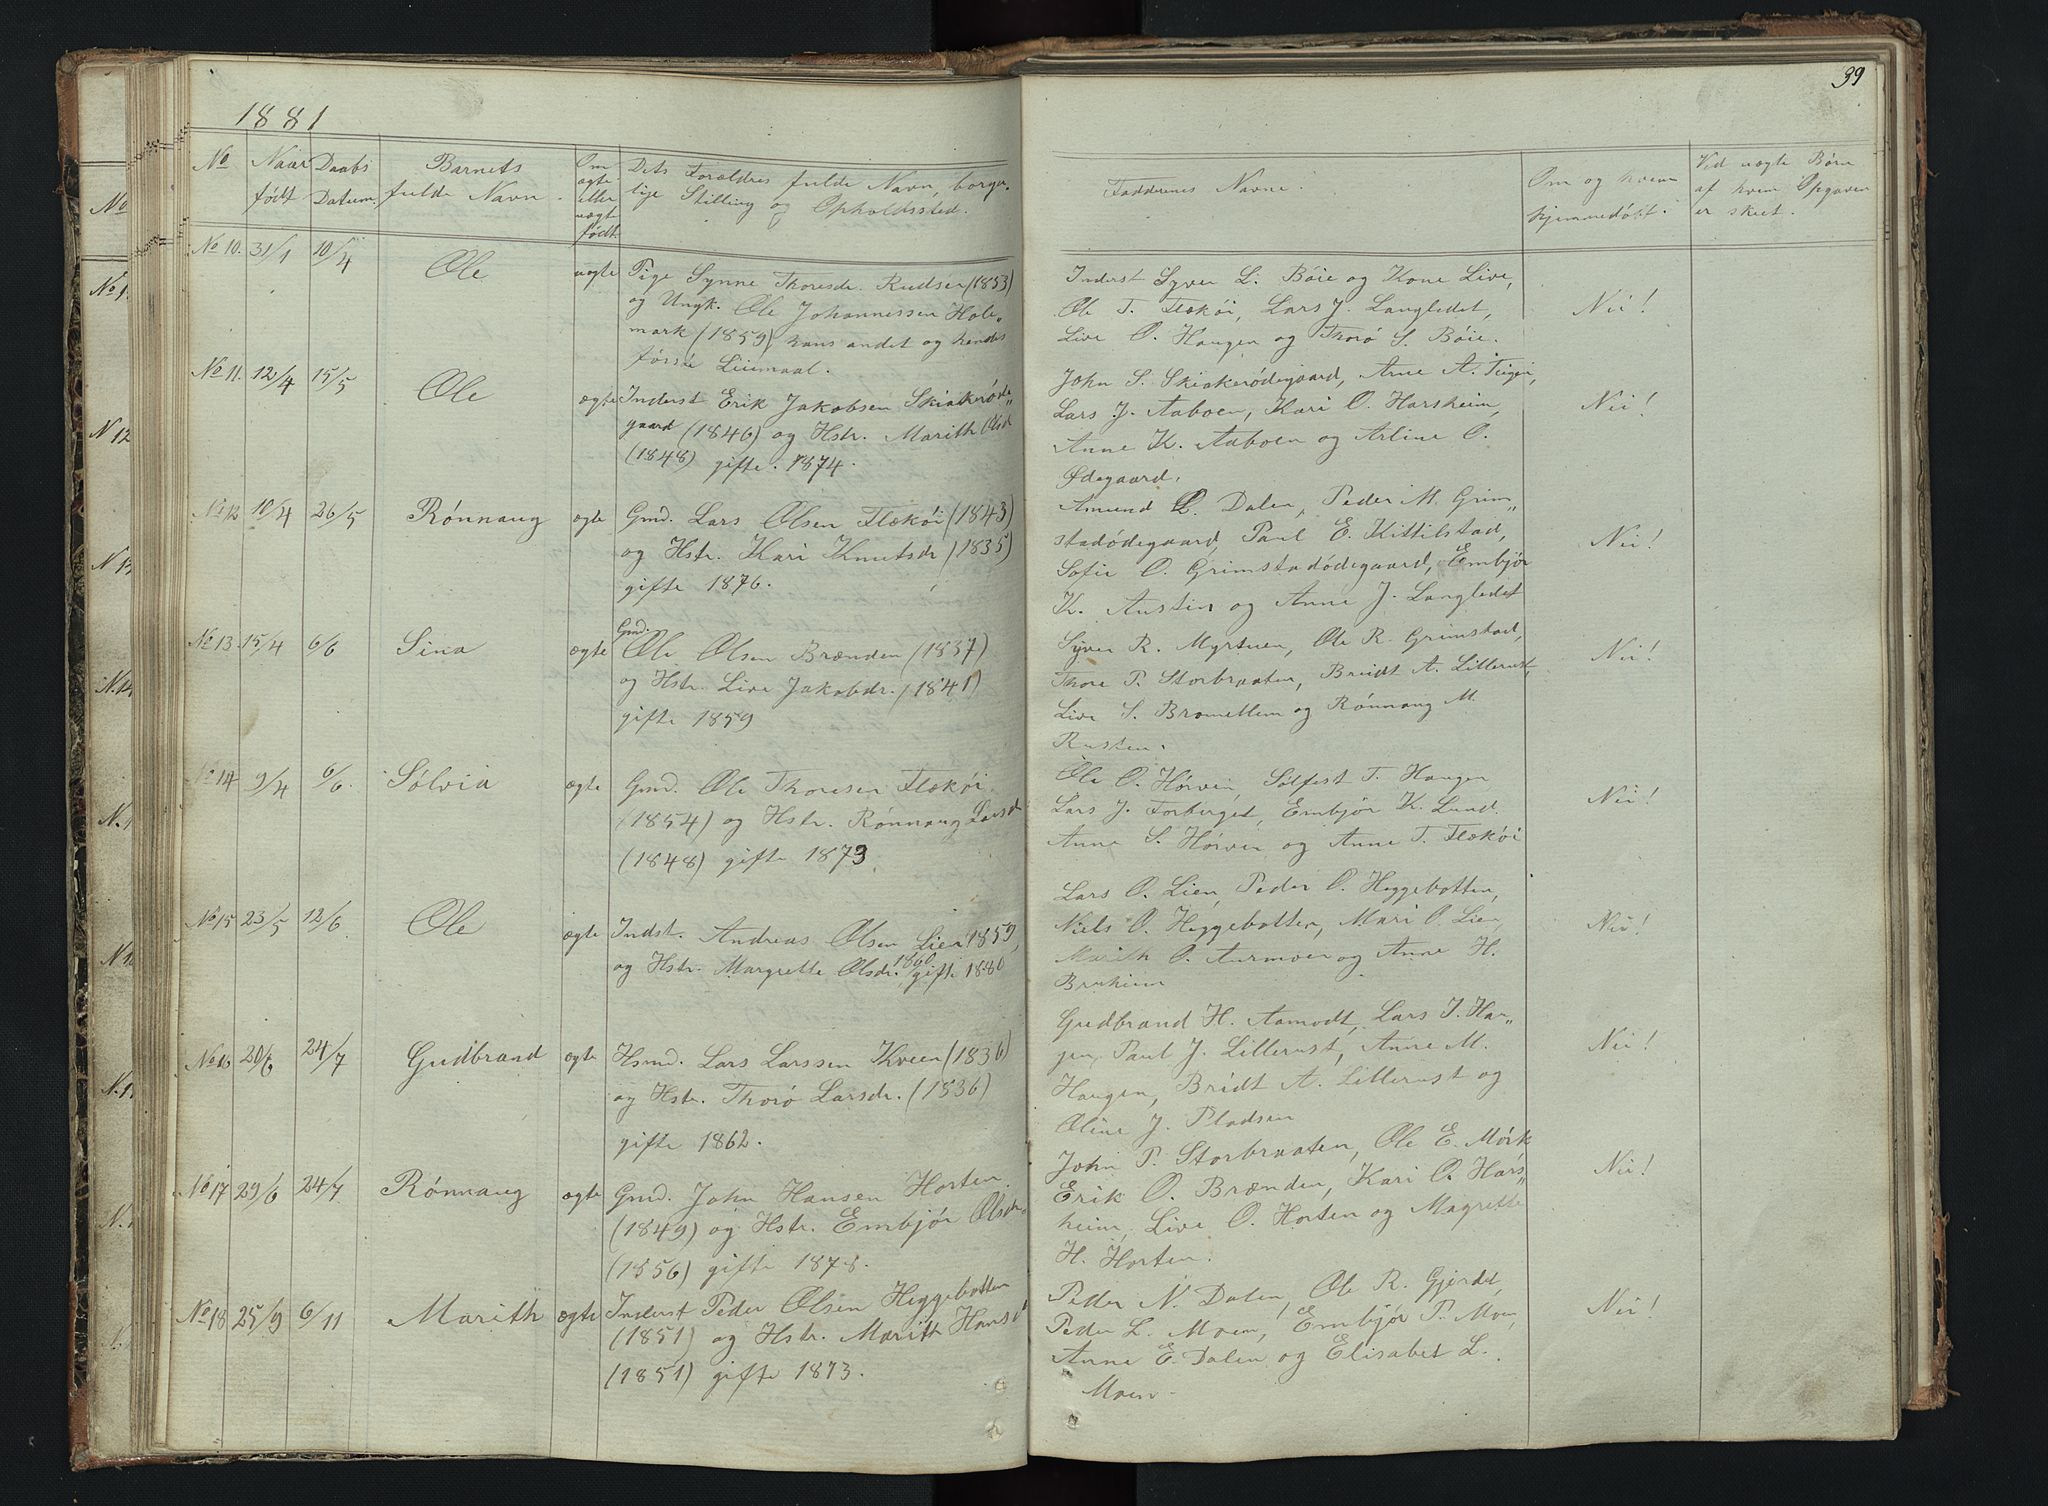 1881
39
No
Naar født
Daabs Datum.
Barnets fulde Navn.
Om ægte eller uægte født.
Dets Forældres fulde Navn, borgerlige Stilling og Opholdssted.
Faddernes Navne.
Om og hvem hjemmedøbt.
Ved uægte Børn af hvem Opgaven er skeet.
No 10. 31/1 10/4 Ole uægte
Pige Synne Thoresdr. Rudsen (1853)
og Ungk. Ole Johannessen Hole„
mark (1859) hans andet og hendes
første Leiemaal.
Inderst Syver L. Bøie og Kone Live,
Ole T. Flækøi, Lars J. Langledet,
Live O. Haugen og Thorø S. Bøie.
Nei!
No 11. 12/4 15/5 Ole ægte
Inderst Erik Jakobsen Skiakerøde„
gaard (1846) og Hstr. Marith Olsd
(1848) gifte. 1874.
John S. Skiakerødegaard, Arne A. Teigen,
Lars J. Aaboen, Kari O. Harsheim,
Anne K. Aaboen og Arline O.
Ødegaard.
Nei!
No 12 10/4 26/5 Rønnaug ægte
Gmd. Lars Olsen Flækøi (1843)
og Hstr. Kari Knutsdr (1835)
gifte 1876.
Amund L. Dalen, Peder M. Grim„
stadødegaard, Paul E. Kittilstad,
Sofie O. Grimstadødegaard, Embjør
K. Austin og Anne J. Langledet
Nei!
No 13 15/4 6/6 Sina ægte
Gmd.
Ole Olsen Brænden (1837)
og Hstr. Live Jakobdr. (1841)
gifte 1859
Syver R. Myrtuen, Ole R. Grimstad,
Thore P. Storbraaten, Breidt A. Lillerust,
Live S. Bromellem og Rønnaug M.
Rusten.
Nei!
No 14 9/4 6/6. Sølvia ægte
Gmd. Ole Thoresen Flækøi
(1854) og Hstr. Rønnaug Larsd
(1848) gifte 1873.
Ole O. Hørven, Sølfest T. Haugen
Lars J. Forberget, Embjør K. Lund.
Anne S. Hørven og Anne T. Flækøi
Nei!
No 15 23/5 12/6 Ole ægte
Indst. Andreas Olsen Lien 1859,
og Hstr. Margrette Olsdr. 1860, gifte 1880
Lars O. Lien, Peder O. Heggebotten,
Niels O. Heggebotten, Mari O. Lien,
Marith O. Aurmoen og Anne H.
Bruheim
Nei!
No 16 20/6 24/7 Gudbrand ægte
Hsmd. Lars Larssen Kveen (1836)
og Hstr. Thorø Larsdr. (1836)
gifte 1862.
Gudbrand H. Aamodt, Lars I. Hau„
gen, Paul J. Lillerust, Anne M.
Haugen, Bridt A. Lillerust og
Oline J. Pladsen
Nei!
No 17 29/6 24/7 Rønnaug ægte
Gmd. John Hansen Horten.
(1849) og Hstr. Embjør Olsdr.
(1856) gifte 1878.
John P. Storbraaten, Ole E. Mørk
Erik O. Brænden, Kari O. Hars„
heim, Live O. Horten og Magrette
H. Horten.
Nei!
No 18 25/9 6/11 Marith ægte
Inderst Peder Olsen Heggebotten
(1851) og Hstr. Marith Hansd
(1851) gifte 1873.
Peder N. Dalen, Ole R. Gjerdet,
Peder L. Moen, Embjør P. Moen,
Anne E. Dalen og Elisabet L.
Moen.
Nei!